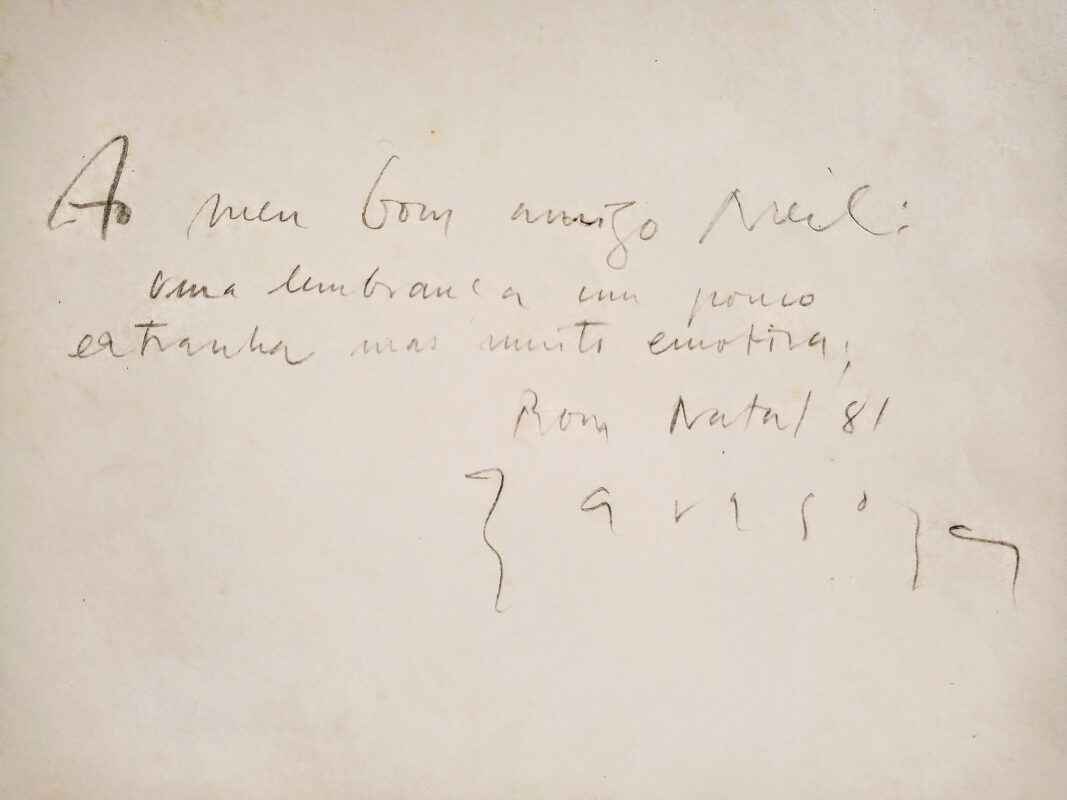 Ao meu bom amigo Neil:
uma lembrança um pouco
extranha mas muito emotiva;
Bom Natal 81